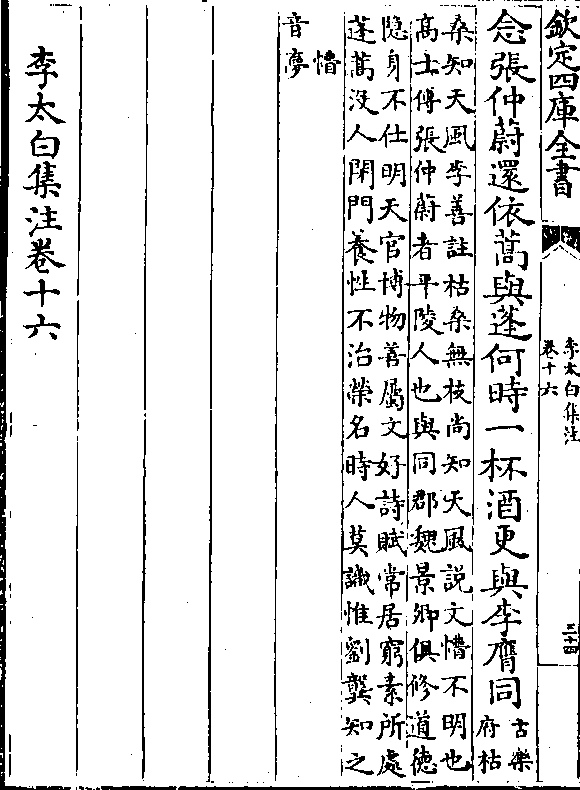 欽定四庫全書
李太白集注
卷十六
三十四
念張仲蔚還依蒿與蓬何時一杯酒更與李膺同
古樂
府枯
桑知天風李善註枯桑無枝尚知天風説文懵不明也
高士傳張仲蔚者平陵人也與同郡魏景卿俱修道德
隐身不仕明天官博物善屬文好詩賦常居窮素所處
蓬蒿没人閉門養性不治榮名時人莫識惟劉龔知之
懵
音夢
李太白集注卷十六